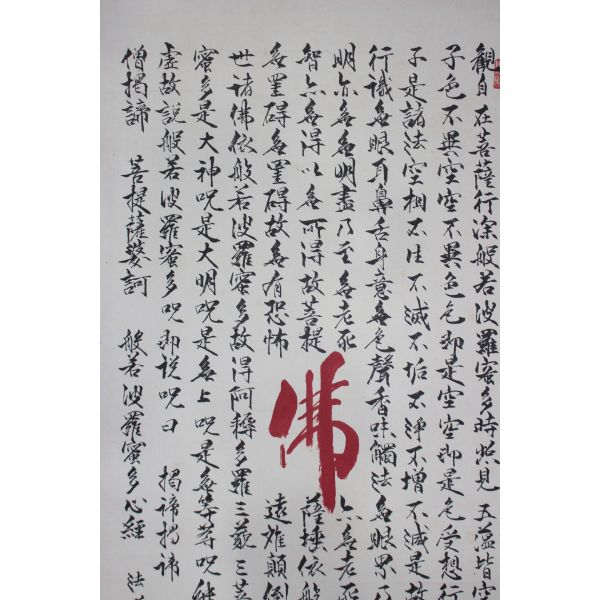 觀自在菩薩行深般若波羅蜜多時照見五蘊皆空
子色不異空空不異色色即是空空即是色受想行
子是諸法空相不生不滅不垢不淨不增不減是故
行識無眼耳鼻舌身意無色聲香味觸法無眼界
明亦無無明盡乃至無老死 亦無老死
智亦無得以無所得故菩提 薩埵依般
無罣碍無罣碍故無有恐怖 遠離顛倒
佛
世諸佛依般若波羅蜜多故得阿耨多羅三藐三菩
蜜多是大神呪是大明呪是無上呪是無等等呪能
虛故說般若波羅蜜多呪即說呪曰 揭諦揭諦
僧揭諦 菩提薩婆訶 般若波羅蜜多心經 法